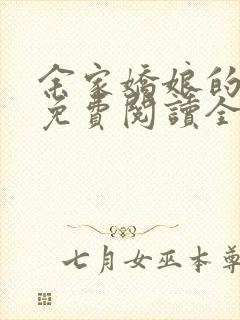 余家嬌娘的
免費閱讀全
七月女巫本尊